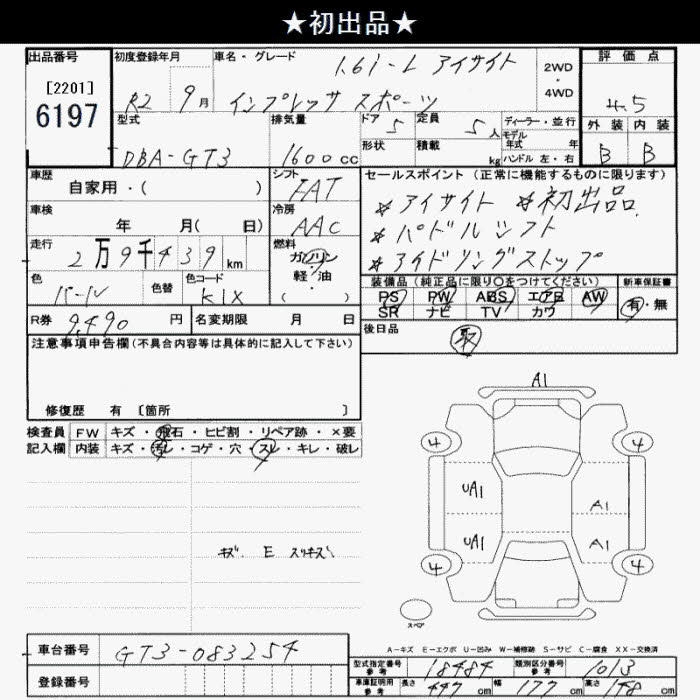 ★初出品★
出品番号 初度登録年月 車名・グレード 評価点
[2201] 1.6i-L アイサイト 2WD・4WD 4.5
6197 R2 9月 インプレッサ スポーツ
型式 排気量 ドア 5 定員 5人 ディーラー・並行 外装 内装
モデル年式 年
DBA-GT3 1600cc 形状 積載 kg ハンドル 左・右 B B
車歴 シフト セールスポイント (正常に機能するものに限ります)
自家用・( ) FAT ※アイサイト ※初出品
車検 冷房 ※パドルシフト
年 月( 日) AAC ※アイドリングストップ
走行 燃料
2万9千439km ガソリン
軽・油
( )
色 色替 色コード 装備品 (純正品に限り○をつけてください) 新車保証書
パール K1X PS PW ABS エアB AW 有・無
SR ナビ TV カワ
R券 9,490円 名変期限 月 日 後日品
注意事項申告欄(不具合内容等は具体的に記入して下さい) 取
修復歴 有 [箇所 ]
検査員 FW キズ・飛石・ヒビ割・リペア跡・×要
記入欄 内装 キズ・汚レ・コゲ・穴・スレ・キレ・破レ
A1
4 4
UA1 A1
UA1 A1
4 4
キズ E スリキズ
スペア
A-キズ E-エクボ U-凹み W-補修跡 S-サビ C-腐食 XX-交換済
車台番号 GT3-083254
登録番号
型式指定番号 参考 18484 類別区分番号 参考 1013
車庫証明用 参考 長さ 447cm 幅 177cm 高さ 148cm